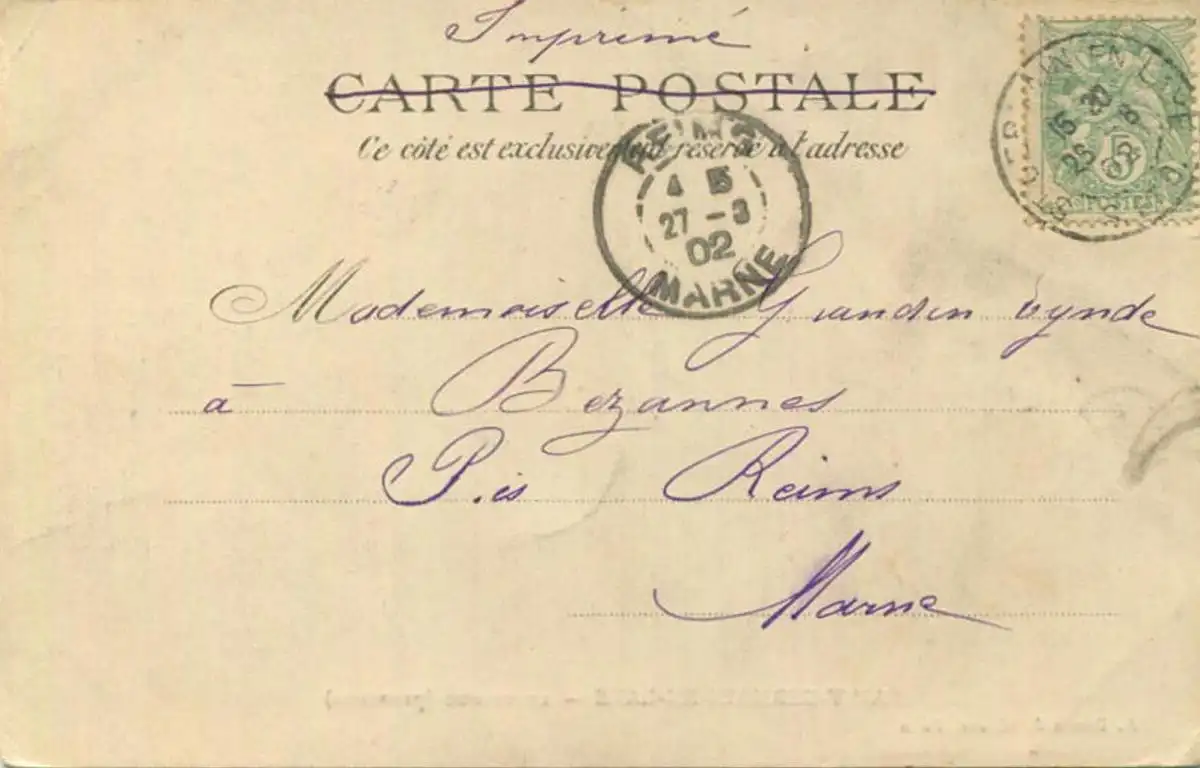 Imprimé
CARTE POSTALE
Ce côté est exclusivement réservé à l'adresse
REIMS
4 5
27 - 3
02
MARNE
5
POSTES
Mademoiselle Grandin Vynde
à Bezannes
P. is Reims
Marne